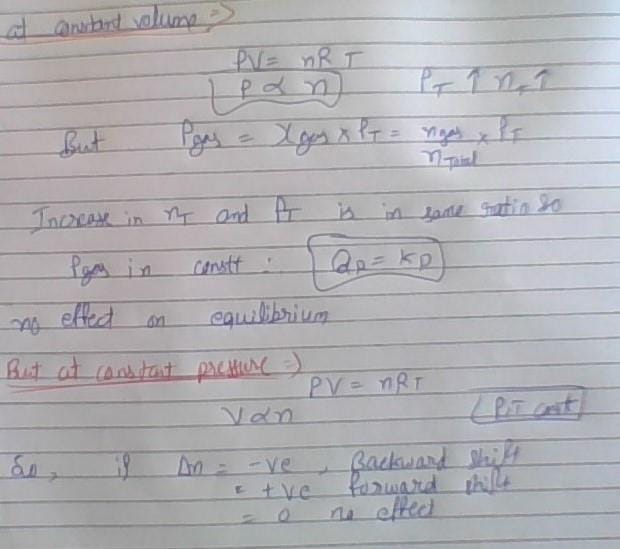 at constant volume ⇒
PV = nRT
P ∝ n P_T ↑ n_T ↑
But P_gas = X_gas × P_T = n_gas/n_Total × P_T
Increase in n_T and P_T is in same ratio so
P_gas in constt : Q_P = K_P
no effect on equilibrium
But at constant pressure ⇒
PV = nRT
V ∝ n (P,T const)
So, if Δn = -ve, Backward shift
= +ve forward shift
= 0 no effect